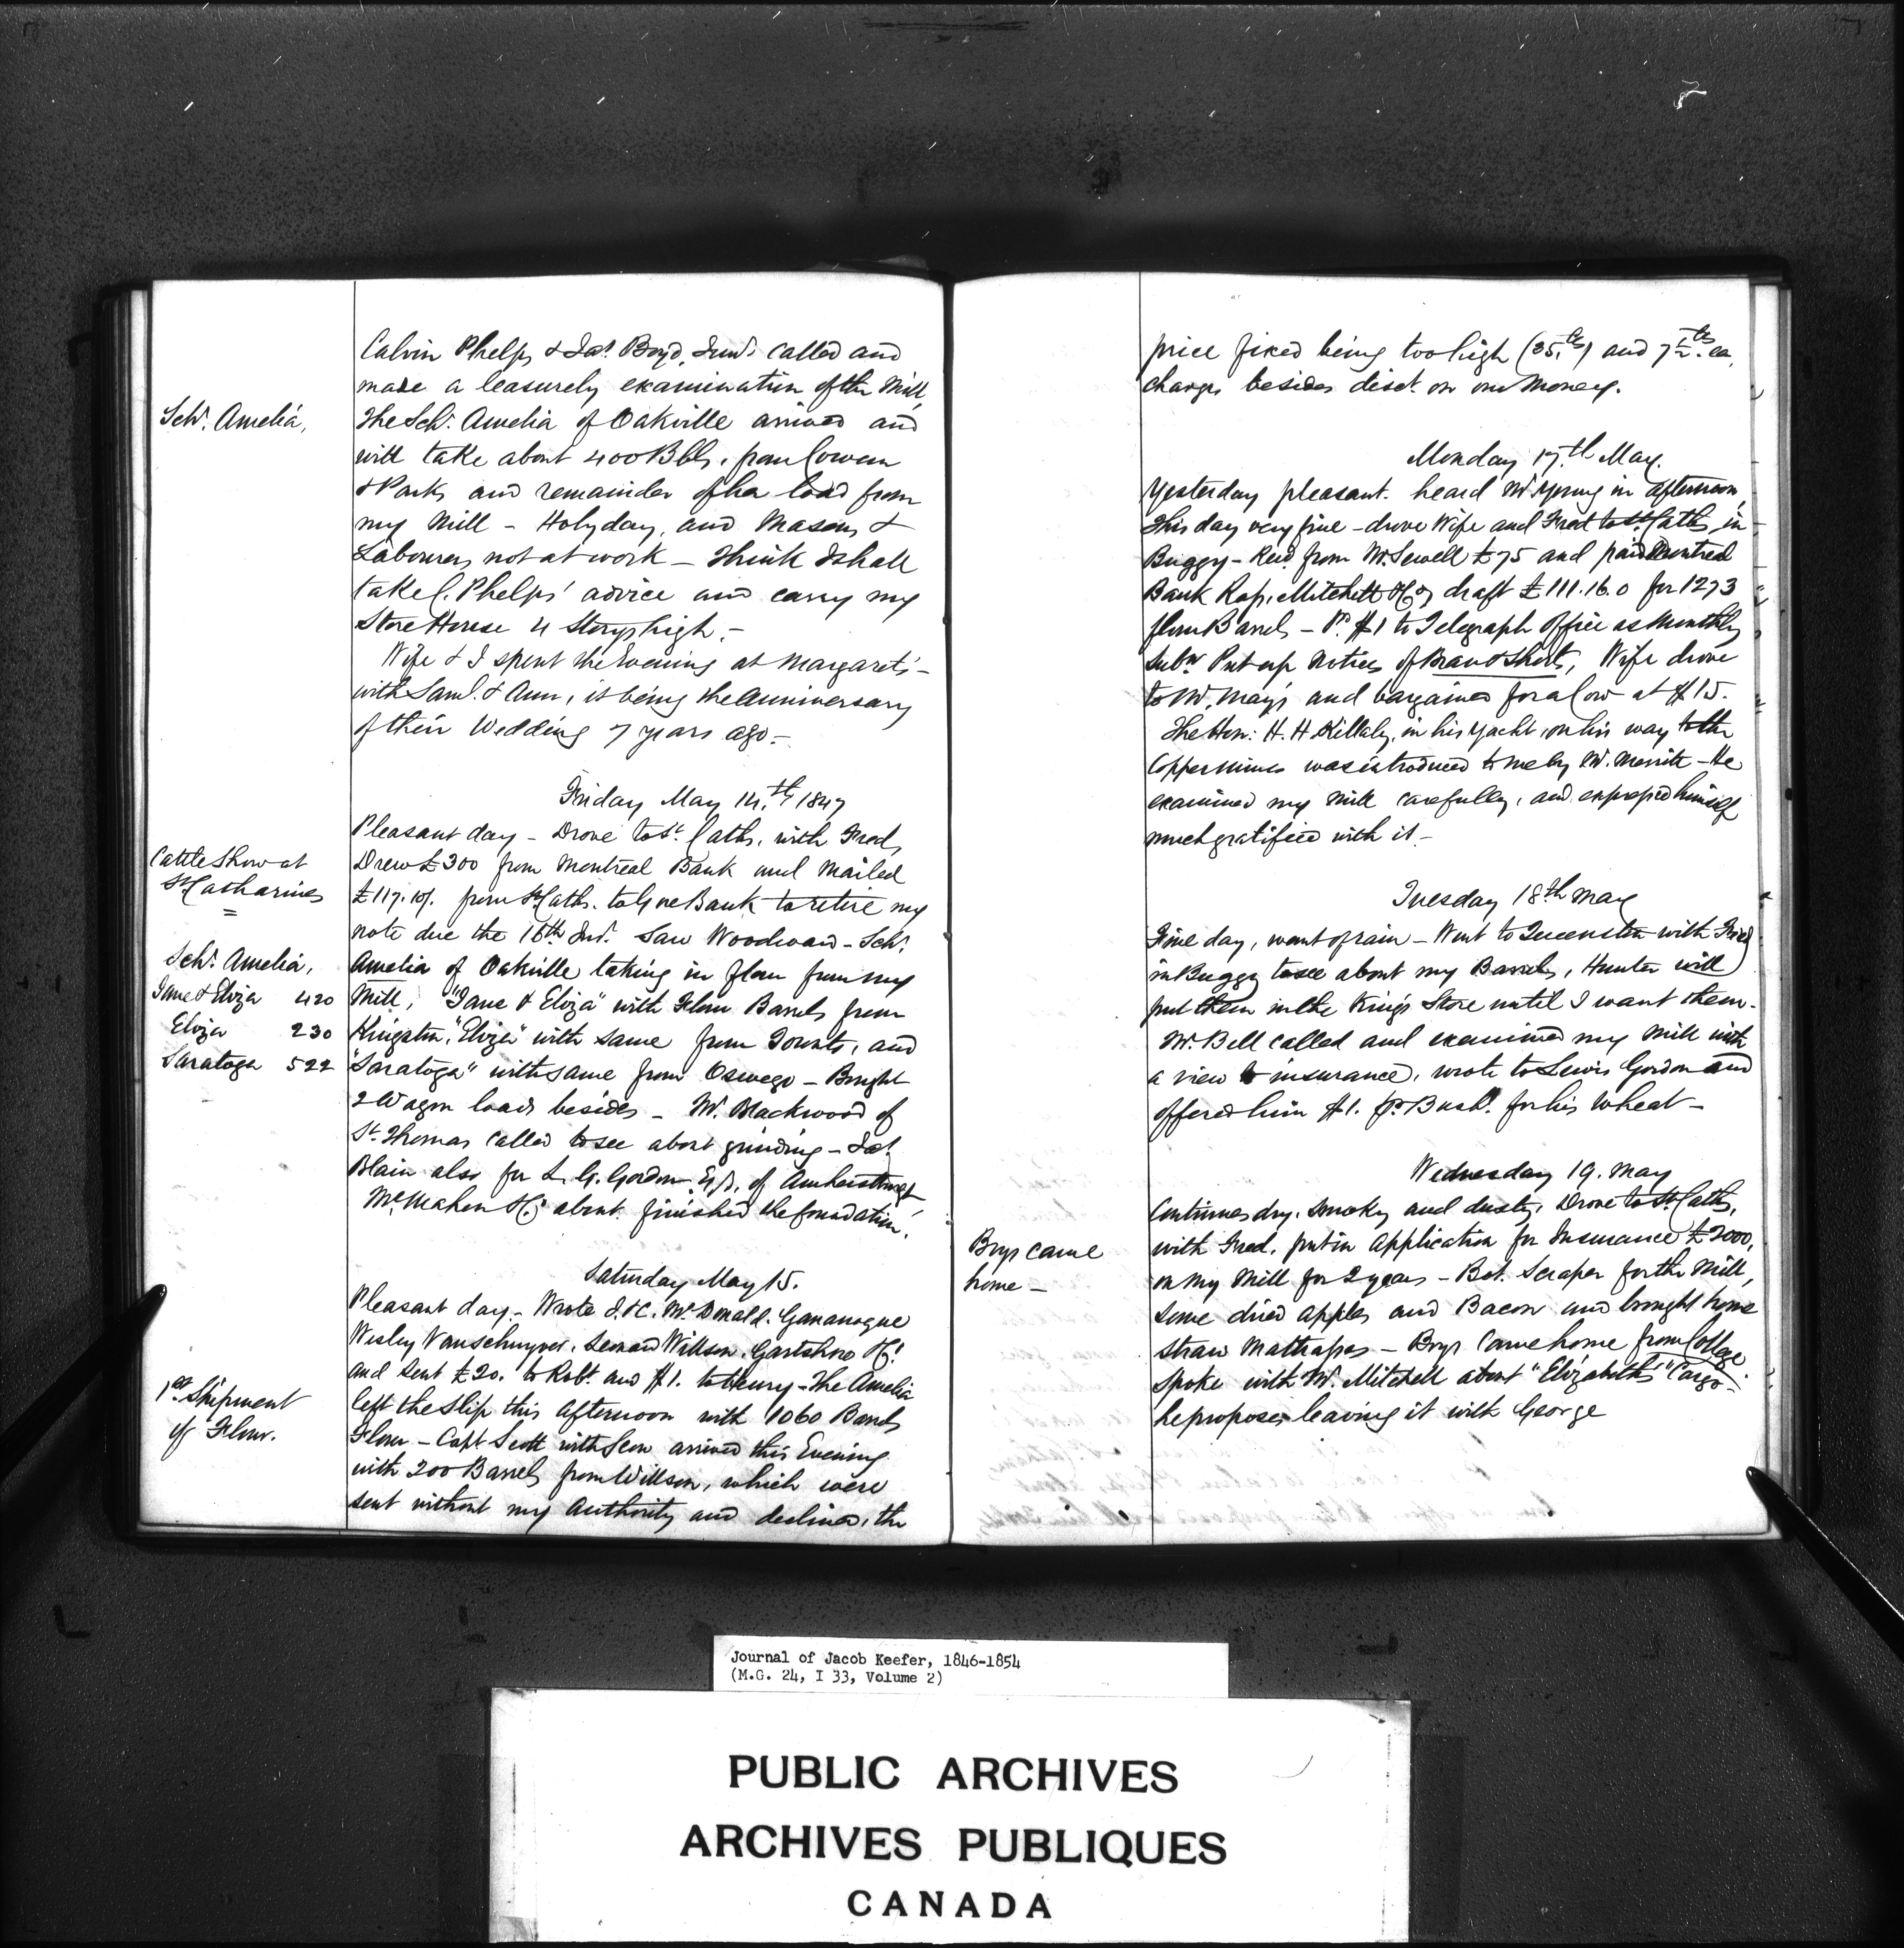 Calvin Phelps & Jas. Boyd, Junr. called and
made a leasurely examination of the Mill,
Schr. Amelia,
The Schr. Amelia of Oakville arrived and
will take about 400 Bbls. from Cowan
& Park, and remainder of her load from
my Mill - Holyday, and Masons &
Labourers not at work - Think I shall
take C. Phelps' advice and carry my
Store House 4 Storys high. -
Wife & I spent the Evening at Margaret's -
with Saml. & Ann, it being the anniversary
of their Wedding 7 years ago. -
Friday May 14.th 1847
Pleasant day - Drove to St. Caths. with Fred,
Cattle Show at
St Catharines
Drew £300 from Montreal Bank and mailed
£117.10/. from St Caths. to Gore Bank to retire my
note due the 16th Inst. Saw Woodward - Schr.
Schr. Amelia,
Amelia of Oakville taking in flour from my
Jane & Eliza 420
Mill, "Jane & Eliza" with Flour Barrels from
Eliza 230
Kingston, "Eliza" with same from Toronto, and
Saratoga 522
"Saratoga" with same from Oswego - Bought
2 Wagon loads besides - Mr. Blackwood of
St. Thomas called to see about grinding - Jas.
Blain also for L. G. Gordon Esq. of Amherstburgh
McMahon & Co. about finished the foundation.
Saturday May 15.
Pleasant day - Wrote I. & C. McDonald. Gananoque
Wesley Vanschuyver. Willson. Gartshore & Co.
and sent £20. to Robt. and $1. to Henry - The Amelia
1st Shipment
of Flour.
left the Slip this afternoon with 1060 Barrels
Flour - Capt Scott with Scow arrived this Evening
with 200 Barrels from Willson, which were
sent without my Authority and declined, the
price fixed being too high (35 cts) and 7½ cts. ea.
charges besides disct. on our Money.
Monday 17.th May.
Yesterday pleasant. heard Mr Young in afternoon,
This day very fine - drove Wife and Fred to St Caths in
Buggy - Recd from Mr. Sewell £75 and paid Montreal
Bank Mitchell & Co's draft £111.16.0 for 1273
flour Barrels - Pd. $1 to Telegraph Office as Monthly
subn Put up notices of Bran & Shorts, Wife drove
to Mr. May's and bargained for a Cow at $15.
The Hon: H. H Killaly, in his yacht, on his way to the
Copper mines was introduced to me by Mr. Merritt - He
examined my Mill carefully, and expressed himself
much gratified with it -
Tuesday 18th May
Fine day, want of rain - Went to Queenston with Fred
in Buggy to see about my Barrels, Hunter will
put them in the King's Store until I want them -
Mr. Bell called and examined my Mill with
a view to insurance, wrote to Lewis Gordon and
offered him $1. pr Bushl. for his wheat -
Wednesday 19. May
Continues dry, smoky and dusty, Drove to St Caths,
Boys came
home -
with Fred, put in Application for Insurance £2000,
on my Mill for 2 years - Bot. Scraper for the Mill,
some dried apples and Bacon and brought home
straw Mattrasses - Boys Came home from College
Spoke with Mr. Mitchell about "Elizabeth's" Cargo -
he proposes leaving it with George
Journal of Jacob Keefer, 1846-1854
(M.G. 24, I 33, Volume 2)
PUBLIC ARCHIVES
ARCHIVES PUBLIQUES
CANADA